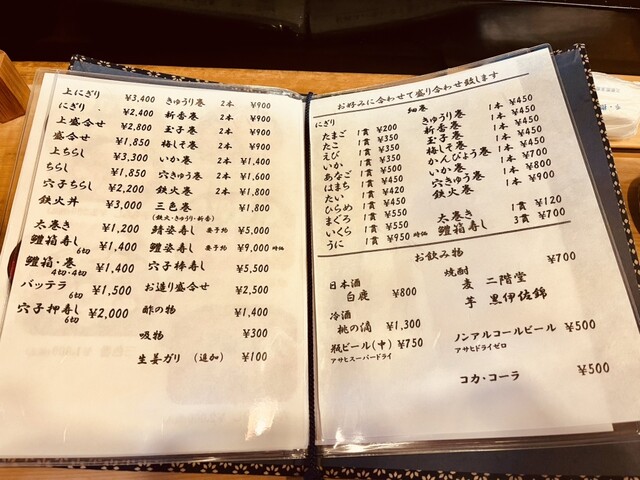 上にぎり ¥3,400
にぎり ¥2,400
上盛合せ ¥2,800
盛合せ ¥1,850
上ちらし ¥3,300
ちらし ¥1,850
穴子ちらし ¥2,200
鉄火丼 ¥3,000
太巻き ¥1,200
鱧箱寿し 6切 ¥1,400
鱧箱・巻 4切・4切 ¥1,400
バッテラ 6切 ¥1,500
穴子押寿し 6切 ¥2,000
きゅうり巻 2本 ¥900
新香巻 2本 ¥900
玉子巻 2本 ¥900
梅しそ巻 2本 ¥900
いか巻 2本 ¥1,400
穴きゅう巻 2本 ¥1,600
鉄火巻 2本 ¥1,800
三色巻 ¥1,800
(鉄火・きゅうり・新香)
鯖姿寿し 要予約 ¥5,000
鱧姿寿し 要予約 ¥9,000 時価
穴子棒寿し ¥5,500
お造り盛合せ ¥2,500
酢の物 ¥1,400
吸物 ¥300
生姜ガリ (追加) ¥100
お好みに合わせて盛り合わせ致します
にぎり
たまご 1貫 ¥200
たこ 1貫 ¥350
えび 1貫 ¥350
いか 1貫 ¥450
あなご 1貫 ¥500
はまち 1貫 ¥450
たい 1貫 ¥420
ひらめ 1貫 ¥450
まぐろ 1貫 ¥550
いくら 1貫 ¥550
うに 1貫 ¥950 時価
細巻
きゅうり巻 1本 ¥450
新香巻 1本 ¥450
玉子巻 1本 ¥450
梅しそ巻 1本 ¥450
かんぴょう巻 1本 ¥450
いか巻 1本 ¥700
穴きゅう巻 1本 ¥800
鉄火巻 1本 ¥900
太巻き 1貫 ¥120
鱧箱寿し 3貫 ¥700
お飲み物
日本酒
白鹿 ¥800
冷酒
桃の滴 ¥1,300
瓶ビール(中) ¥750
アサヒスーパードライ
焼酎 ¥700
麦 二階堂
芋 黒伊佐錦
ノンアルコールビール ¥500
アサヒドライゼロ
コカ・コーラ ¥500